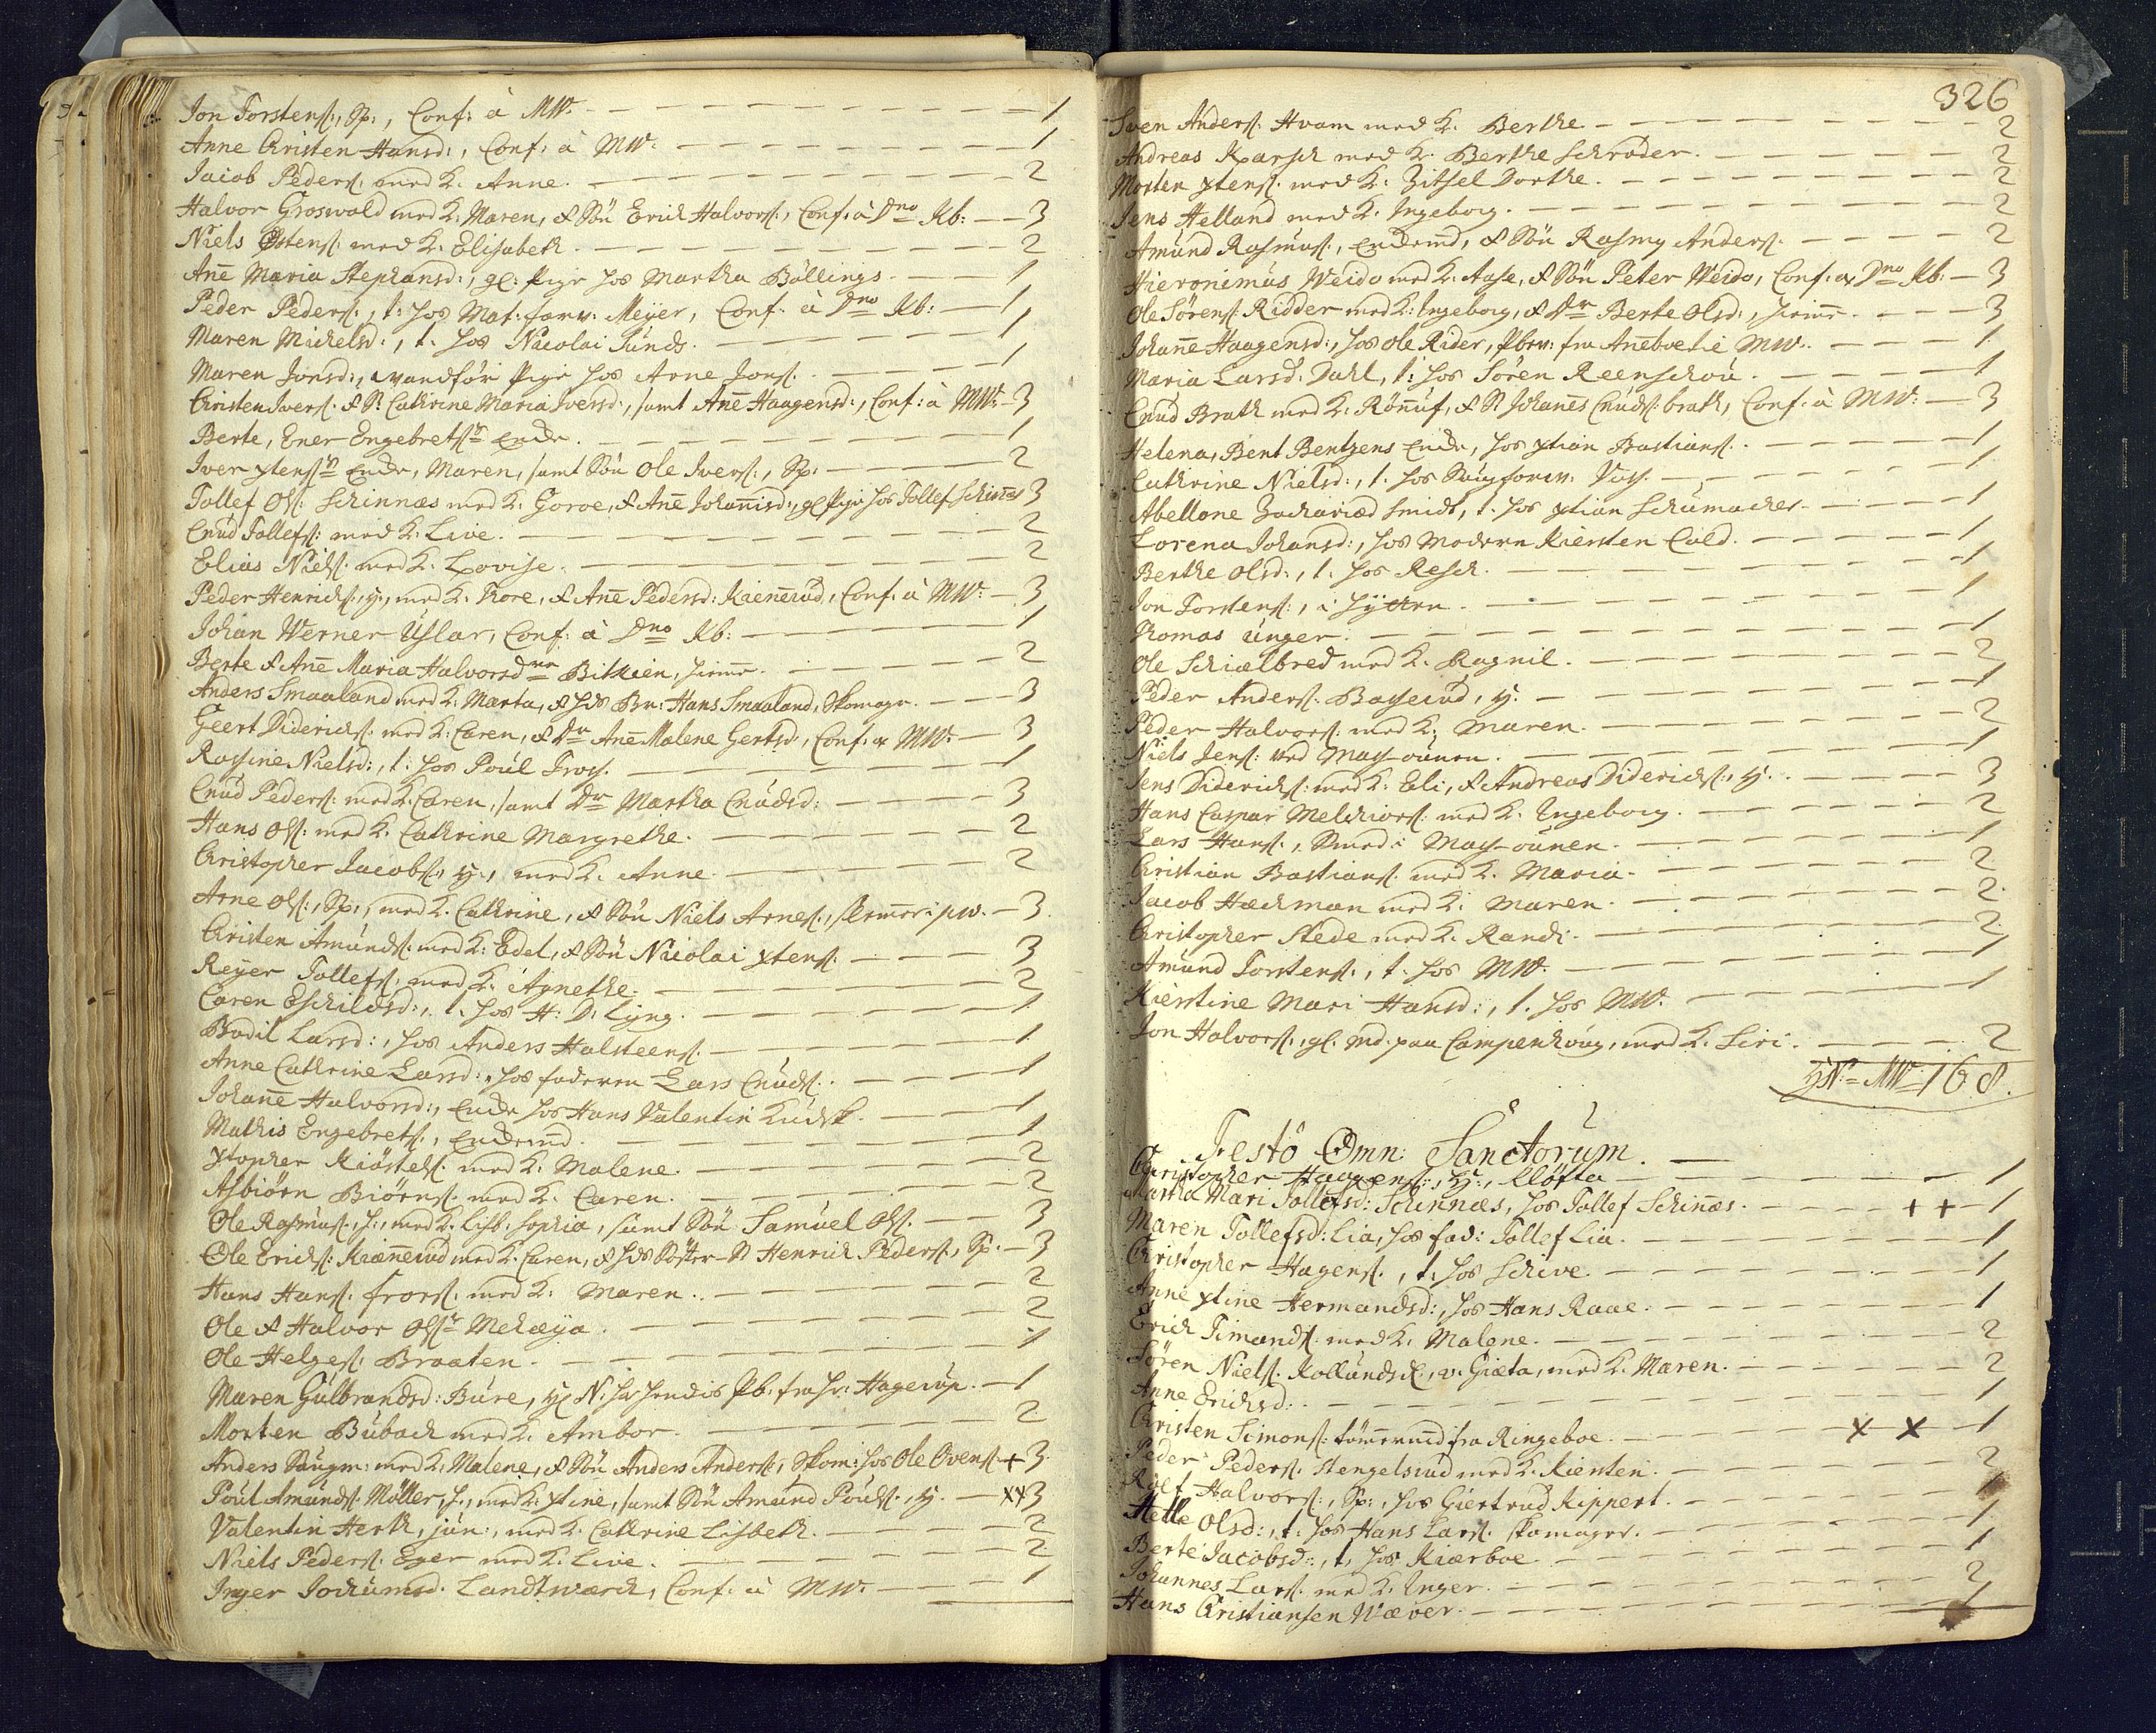 Jon Torstens:, Sp:, Conf: à MW. 1
Anne Christen Hansd:, Conf: à MW: 1
Jacob Peders: med K. Anne. 2
Halvor Groswald med K. Maren, & Sön Erich Halvors:, Conf: à Dno Kb: 3
Niels Østens: med K. Elisabeth. 2
Ane Maria Stephansd:, gl: Pige hos Martha Böllings 1
Peder Peders:, t: hos Mat: forv: Meÿer, Conf: à Dno Kb: 1
Maren Michelsd:, t. hos Nicolai Sünds. 1
Maren Jonsd:, vandför Pige hos Arne Jons: 1
Christen Ivers: & Cathrine Maria Iversd:, samt Ane Haagensd:, Conf: à MW: 3
Berte, Ener Engebrets: Encke. 1
Iver xstens: Encke, Maren, samt Sön Ole Ivers:, Sp: 2
Tollef Ols: Schinnæs med K. Goroe, & Ane Johanisd:, gl Pige hos Tollef Schinæs 3
Cnud Tollefs: med K. Live. 2
Elias Niels: med K. Lovise. 2
Peder Henrichs:, y:, med K. Thore, & Ane Pedersd: Kienerud, Conf: à MW: 3
Johan Werner Uslar, Conf: à Dno Kb: 1
Berte & Ane Maria Halvorsd: Bitkien, hieme. 2
Anders Smaaland med K. Marta, & hds Br: Hans Smaaland, Skomager. 3
Geert Diderichs: med K. Caren, & Dr Ane Malene Gertsd:, Conf: a MW: 3
Rossine Nielsd:, t: hos Poul Tross. 1
Cnud Peders: med K. Caren, samt Dr Martha Cnudsd: 3
Hans Ols: med K. Cathrine Margrethe. 2
Christopher Jacobs:, y:, med K. Anne. 2
Arne Ols:, Sp:, med K. Cathrine, & Sön Niels Arnes:, 3
Christen Amunds: med K. Edel, & Sön Nicolai xtens: 3
Reÿer Tollefs: med K. Agnethe. 2
Caren Eschildsd:, t. hos H: D: Lyng. 1
Bodil Larsd:, hos Anders Halsteens: 1
Anne Cathrine Larsd:, hos faderen Lars Cnuds: 1
Johane Halvorsd:, Encke hos Hans Valentin Kudsk. 1
Mathis Engebrets:, Enckemd. 1
xstopher Kiöstels: med K. Malene. 2
Asbiörn Biörns: med K. Caren. 2
Ole Rasmus:, J:, med K. Lisb: Sophia, samt Sön Samuel Ols: 3
Ole Erichs: Kiænerud med K. Caren, & hds Söster-S: Henrich Peders:, Sp: 3
Hans Hans: frors: med K. Maren. 2
Ole & Halvor Ols: Mehæya. 2
Ole Helges: Braaten. 1
Maren Gulbrandsd: Bure, fra Hr: Hagerup. 1
Morten Bubach med K. Ambor. 2
Anders med K. Malene, & Sön Anders Anders:, Skom: hos Ole Ovens: + 3
Poul Amunds: Möller, J:, med K. xtine, samt Sön Amund Pouls:, y. xx 3
Valentin Herth, jun:, med K. Cathrine Lisbeth. 2
Niels Peders: Eger med K. Live. 2
Inger Jochumsd: Landtwærch, Conf: à MW. 1
326
Sven Anders: Hvam med K. Berthe 2
Andreas Kparsch med K. Berthe Schrøder. 2
Morten xtens: med K. Zitsel Dorthe. 2
Jens Helland med K. Ingeborg. 2
Amund Rasmus:, Enckemd, & Sön Rasmy Anders: 2
Hieronimus Weido med K. Aase, & Sön Peter Weido, Conf: a Dno Kb: 3
Ole Sörens: Ridder med K. Ingeborg, & Dr Berte Olsd:, hieme. 3
Johane Haagensd:, hos Ole Rider, fra Aneboet i MW. 1
Maria Larsd: Dahl, t: hos Sören Reenschou. 1
Cnud Brath med K. Rönnuf, & S: Johanes Cnuds: brath, Conf: à MW: 3
Helena, Bent Bentzens Encke, hos xstian Bastians: 1
Cathrine Nielsd:, t. hos Voss. 1
Abellone Zachariæd Smidt, t. hos xstian Schumacher. 1
Lorena Johansd:, hos Modern Kiersten Cold. 1
Berthe Olsd:, t. hos Resch. 1
Jon Torstens:, i Hÿtten. 1
Thomas Unger. 1
Ole Schialbred med K. Ragnil. 2
Peder Anders: Basserud, y. 1
Peder Halvors: med K. Maren. 2
Niels Jens: ved Mass-ounen. 1
Jens Diderichs: med K. Eli, & Andreas Diderichs:, y. 3
Hans Caspar Melchiors: med K. Ingeborg. 2
Lars Hans:, Smed i Mass-ounen. 1
Christian Bastians: med K. Maria. 2
Jacob Hachman med K. Maren. 2
Christopher Stede med K. Randi. 2
Amund Torstens:, t. hos MW. 1
Kierstine Mari Hansd:, t. hos MW: 1
Jon Halvors:, gl. md. paa Campenhoug, med K. Siri. 2
MW: 168.
Festo Omn: Sanctorum.
Christopher Haagens:, y:, Klöfta 1
Martha Mari Tollefsd: Schinnæs, hos Tollef Schinæs. ++ 1
Maren Tollefsd: Lia, hos fad: Tollef Lia. 1
Christopher Hagens:, t. hos Schive. 1
Anne xstine Hermandsd:, hos Hans Raae. 1
Erich Timands: med K. Malene. 2
Sören Niels: Kollunds, v. Giæta, med K. Maren. 2
Anne Erichsd: 1
Christen Simons: tömermd fra Ringeboe. x x 1
Peder Peders: Stengelsrud med K. Kiersten. 2
Rolf Halvors:, Sp:, hos Giertrud Rippert. 1
Helle Olsd:, t. hos Hans Lars: skomager. 1
Berte Jacobsd:, t, hos Kiærboe. 1
Johannes Lars: med K. Inger. 2
Hans Christiansen Wæver. 1